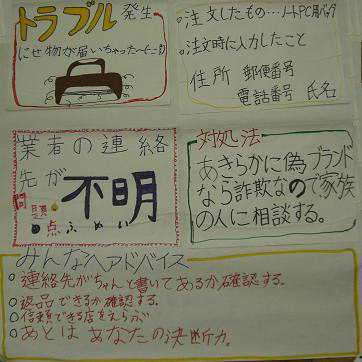 トラブル発生
にせ物が届いちゃった〜(-_-;)
○注文したもの…ノートPC用バッグ
○注文時に入力したこと
住所 郵便番号
電話番号 氏名
業者の連絡
先が 不明
問題点 ふめい
対処法
あきらかに偽ブランド
なら詐欺なので家族
の人に相談する。
みんなへアドバイス
○連絡先がちゃんと書いてあるか確認する。
○返品できるか確認する。
○信頼できる店をえらぶ
○あとは あなたの決断力。